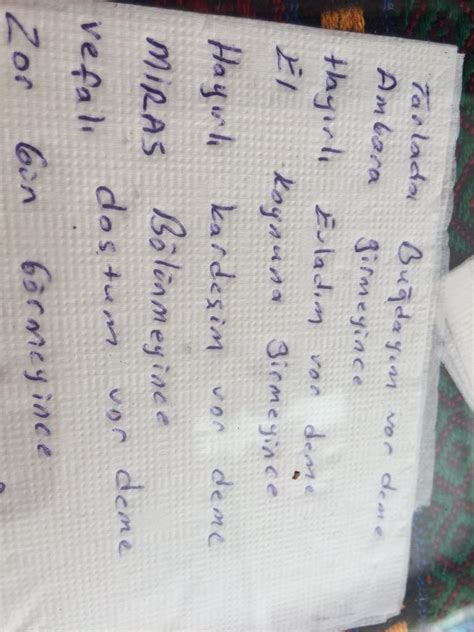 Tarlada Buğdayım var deme
Ambara girmeyince
Hayırlı Evladım var deme
El koynuna girmeyince
Hayırlı kardeşim var deme
MİRAS Bölünmeyince
vefalı dostum var deme
Zor Gün Görmeyince